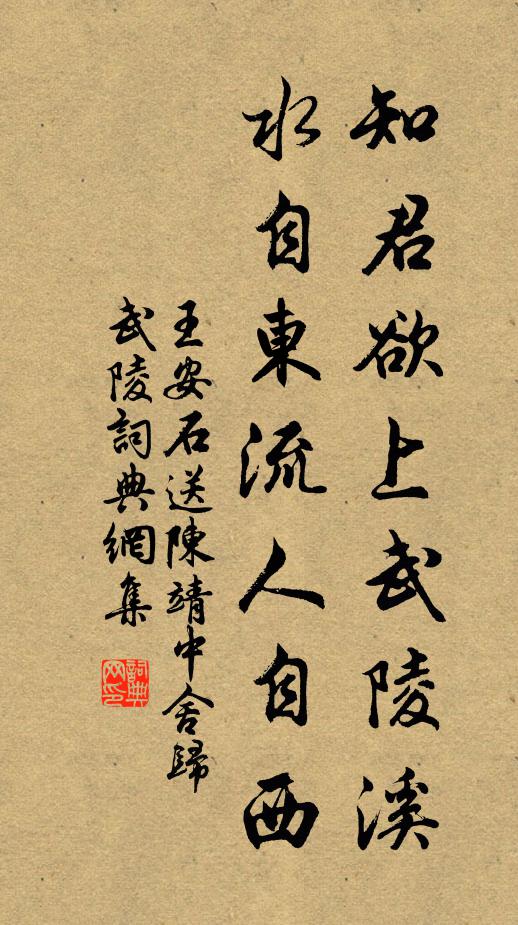 知君欲上武陵溪
水自東流人自西
王安石送陳靖中舍歸
武陵詞典網集
詞典網印